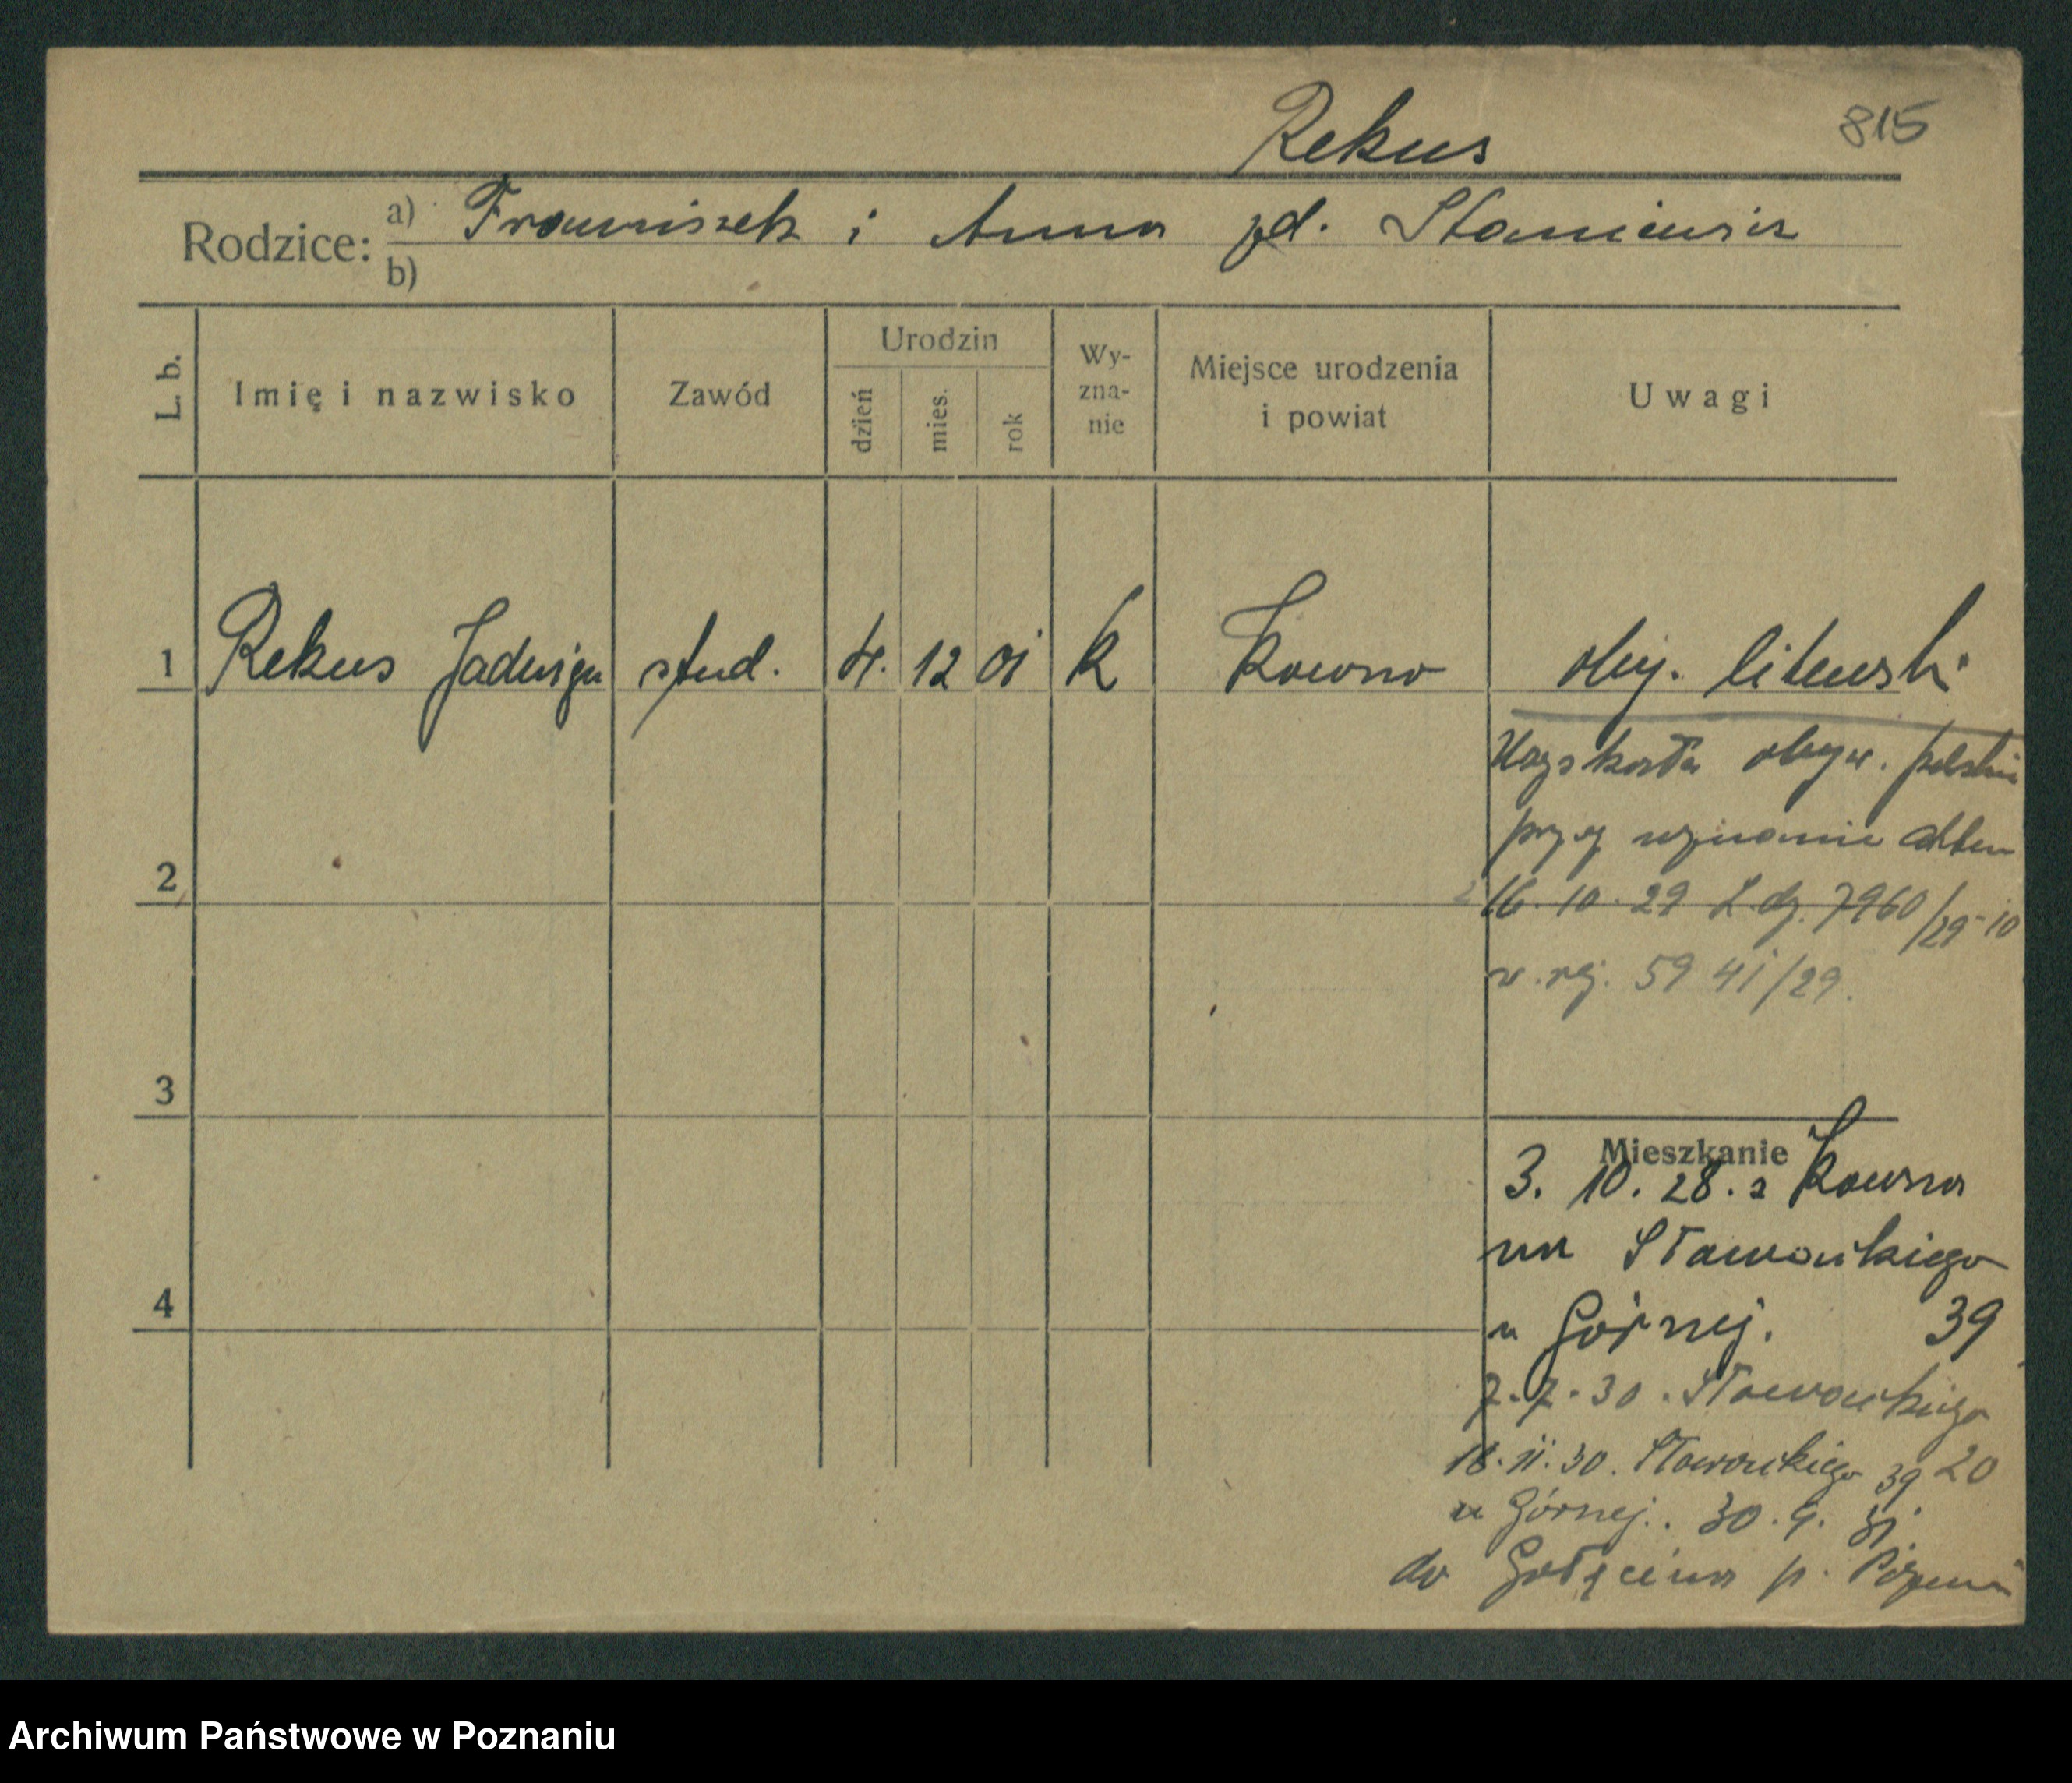 Rekus
815
Rodzice: a) Franciszek i Anna zd. Staniewicz
b)
L. b.
Imię i nazwisko
Zawód
Urodzin
dzień
mies.
rok
Wy-
zna-
nie
Miejsce urodzenia
i powiat
Uwagi
1 Rekus Jadwiga stud. 4. 12 01 k Kowno obyw. litewski
Uzyskała obyw. polskie
przez uznanie aktem
z 16.10.29 L.dz. 7960/29-10
w. rej. 5941/29.
2
3
4
Mieszkanie
3. 10. 28. z Kowna
na Słowackiego
u Górnej. 39
7.7.30. Słowackiego
20
18.11.30. Słowackiego 39
u Górnej. 30.9.31
do Gołęcina p. Poznań